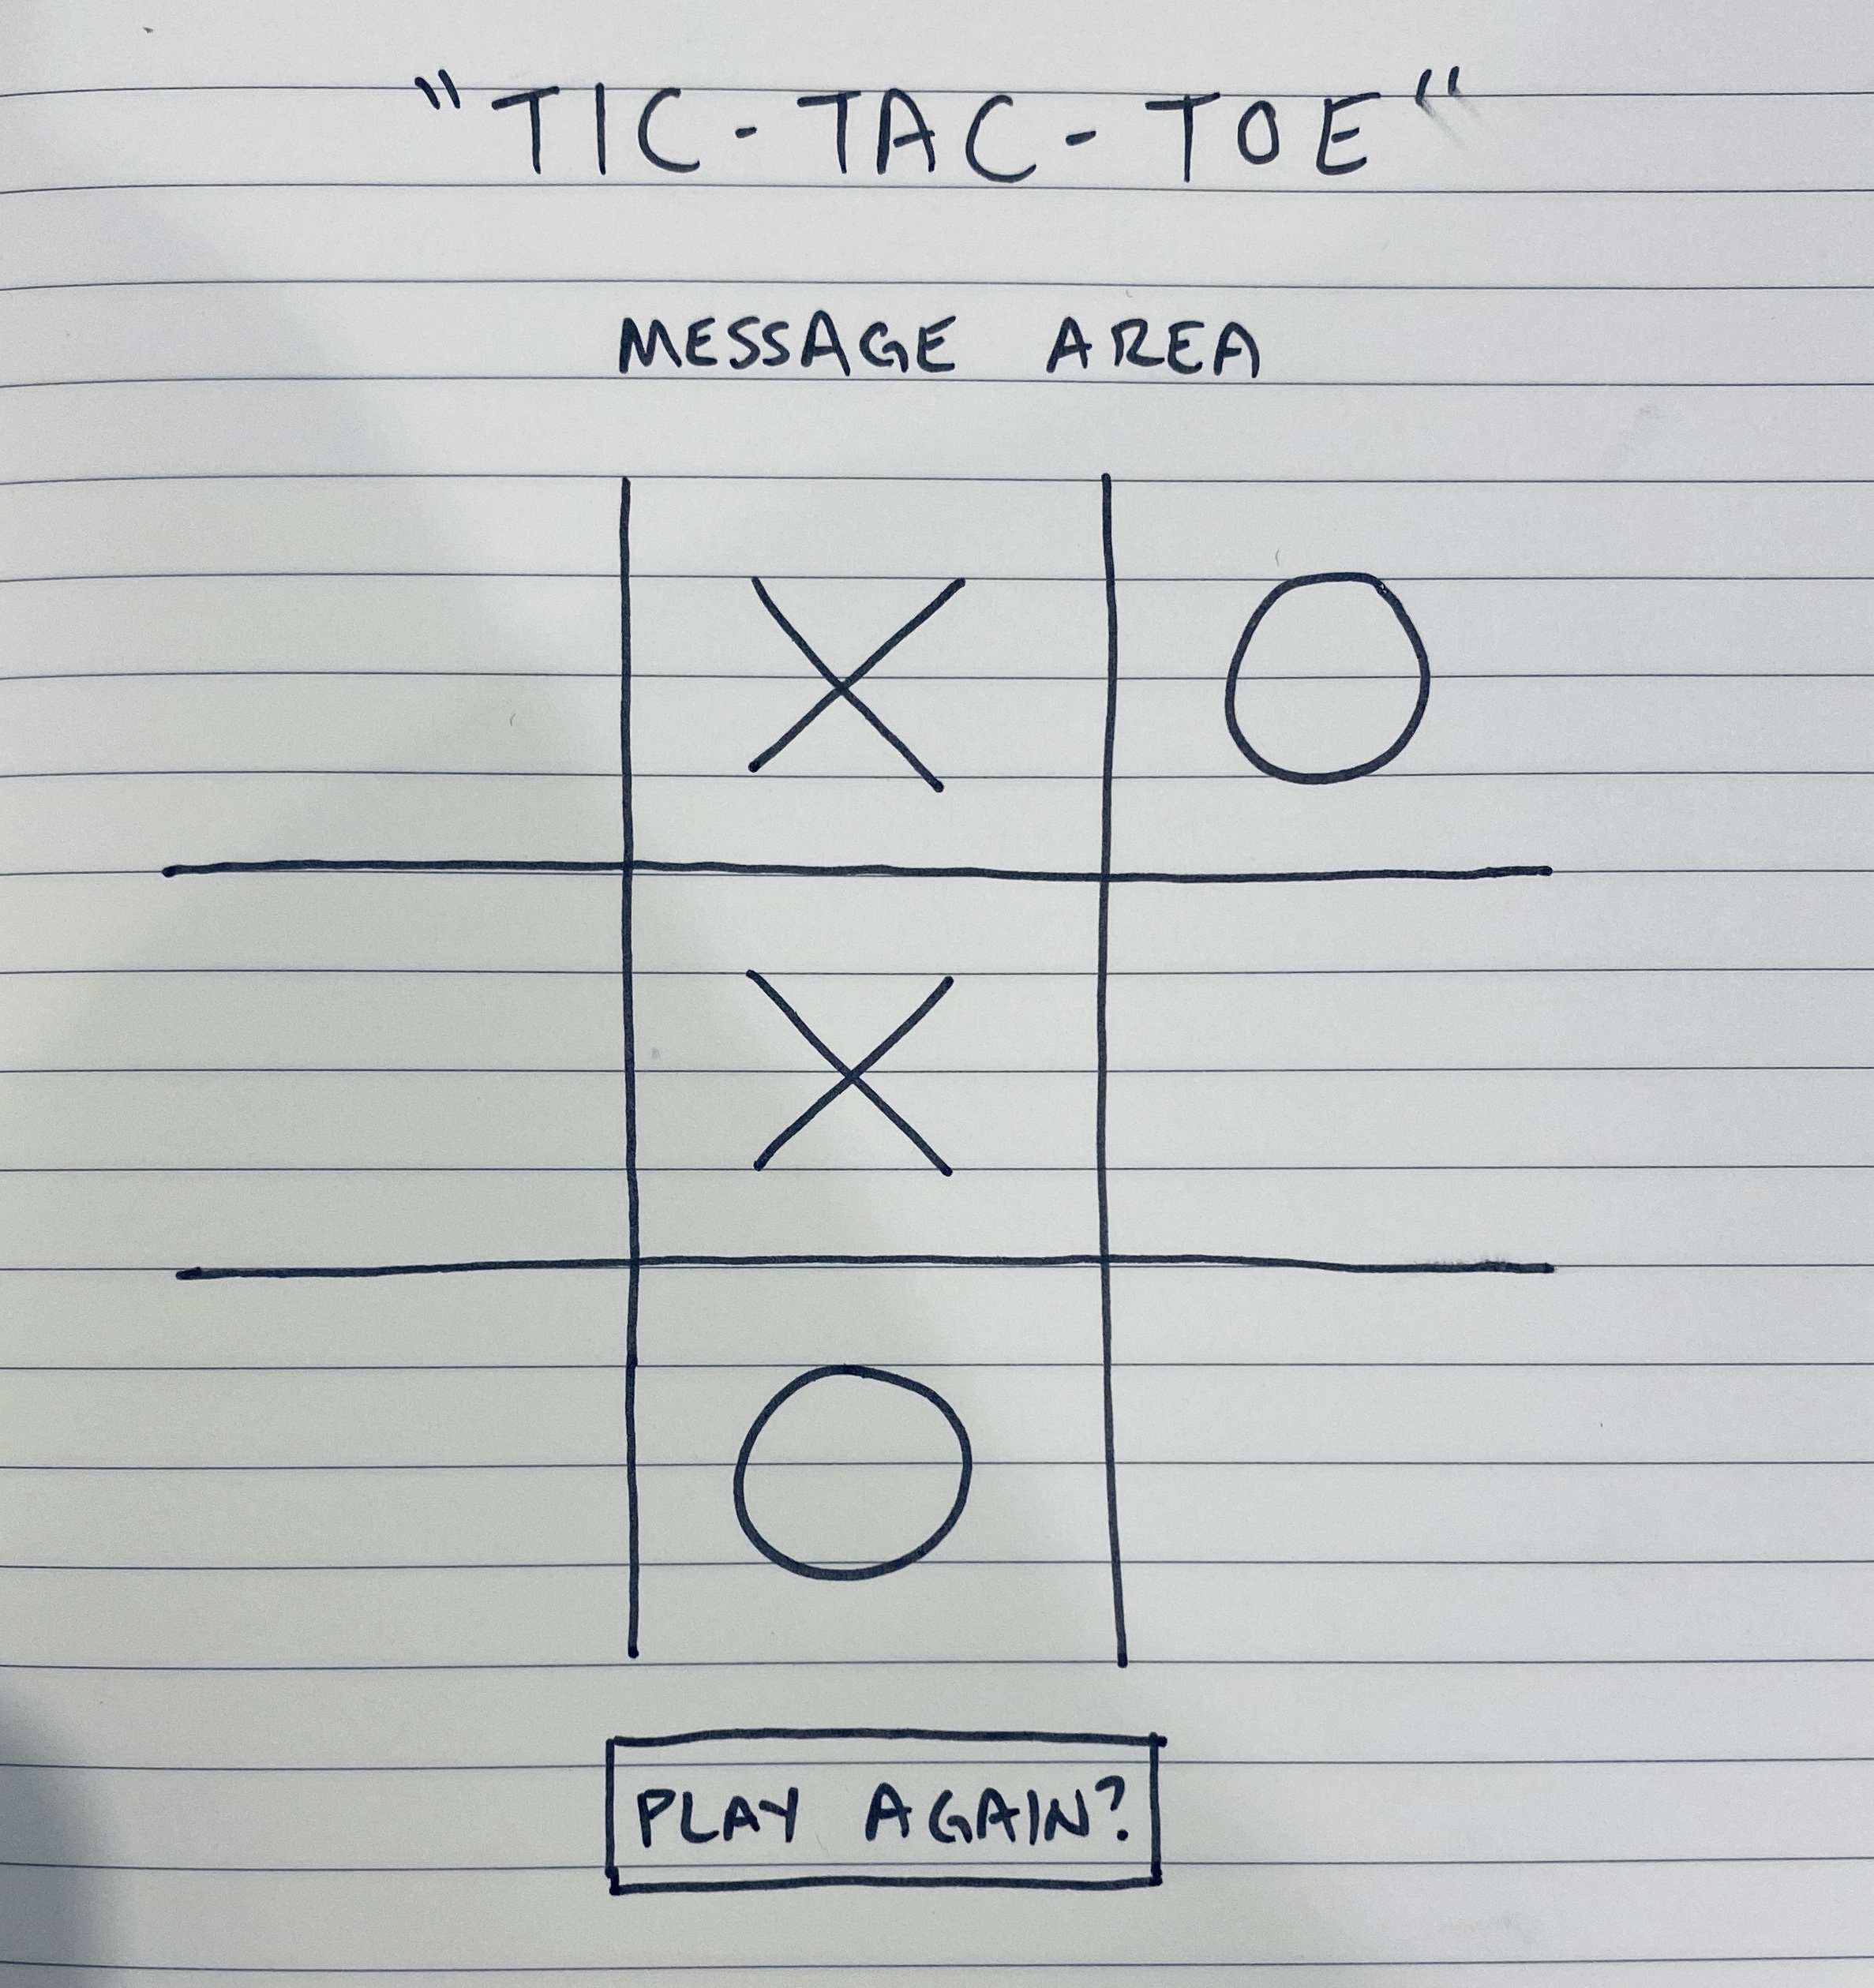 "TIC-TAC-TOE"
MESSAGE AREA
X O
X
O
PLAY AGAIN?